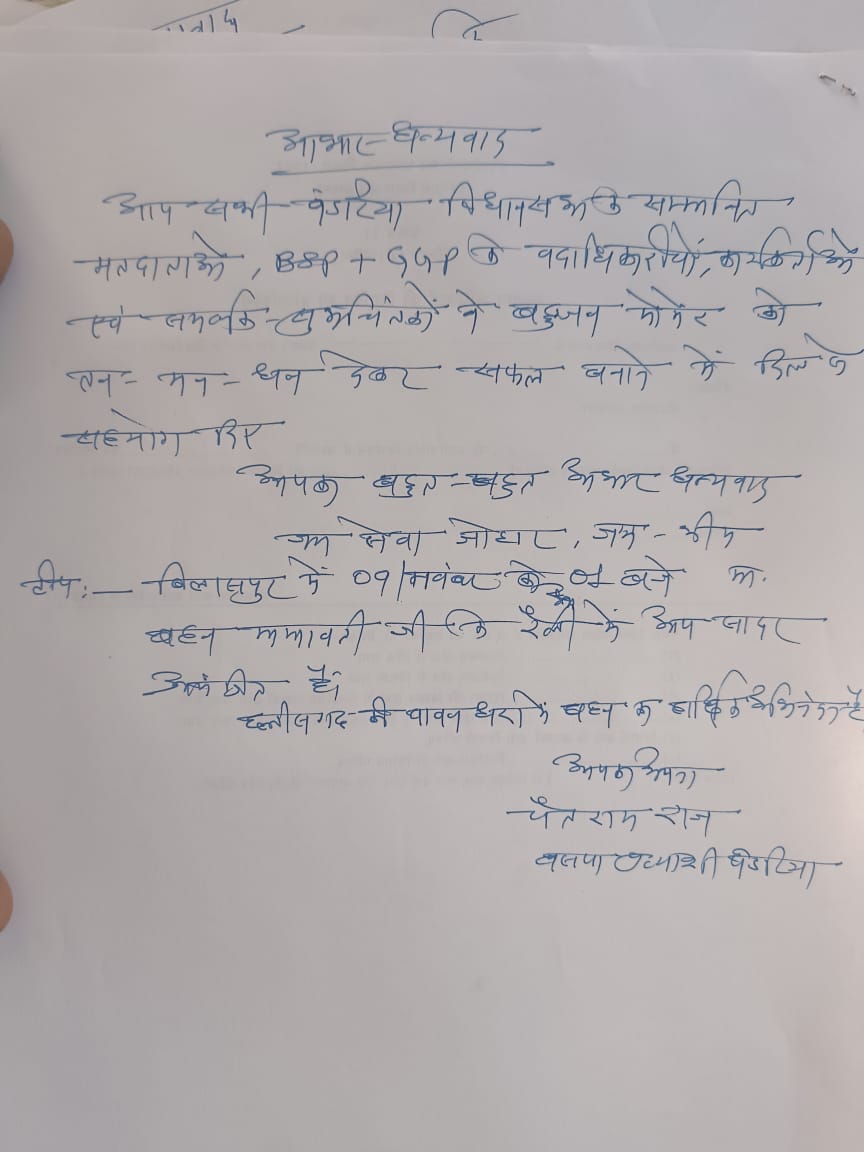 आभार-धन्यवाद
आप सभी पंडरिया विधानसभा के सम्मानित
मतदाताओं, BSP + GGP के पदाधिकारीयों, कार्यकर्ताओं
एवं समर्थक-शुभचिंतकों ने बहुजन मोमेंट को
तन-मन-धन देकर सफल बनाने में दिल से
सहयोग दिए
आपका बहुत-बहुत आभार धन्यवाद
जय सेवा जोहार, जय-भीम
टीप:- बिलासपुर में 09/नवंबर को 01 बजे मा.
बहन मायावती जी के रैली में आप सादर
आमंत्रित हैं
छत्तीसगढ़ की पावन धरा में बहन का हार्दिक अभिनंदन है
आपका अपना
चैतराम राज
बसपा प्रत्याशी पंडरिया